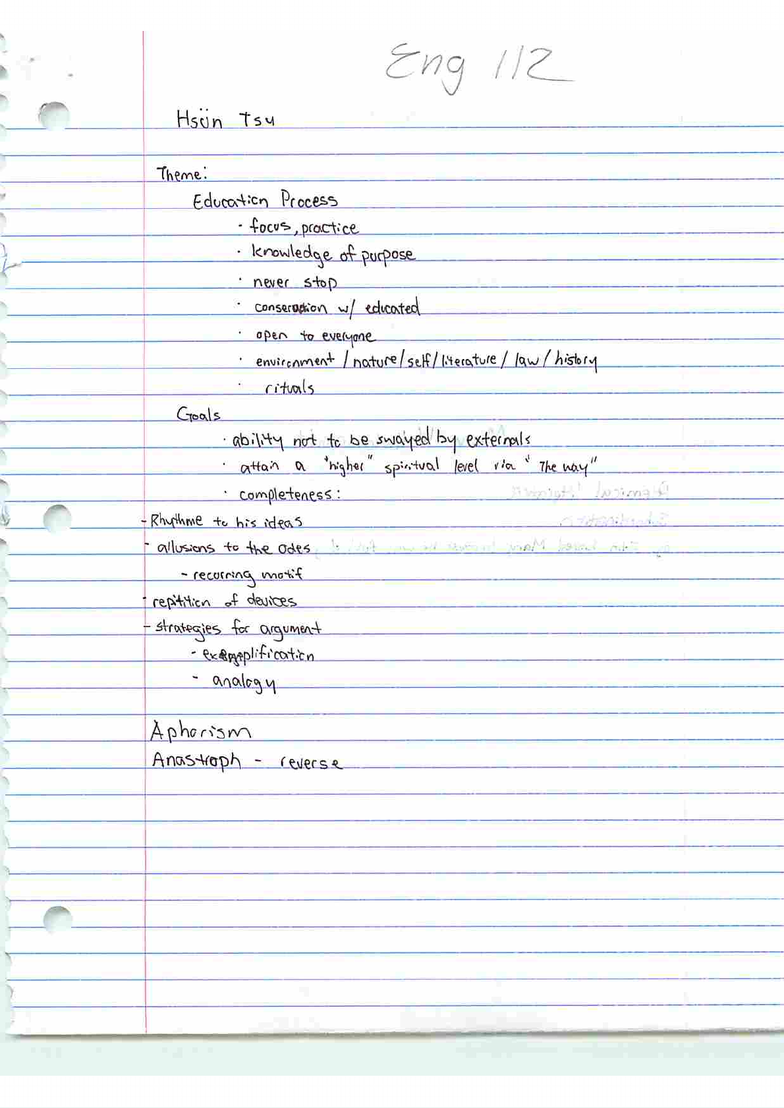 Eng 112
Hsün Tsu
Theme:
Education Process
· focus, practice
· knowledge of purpose
· never stop
· conseration w/ educated
· open to everyone
· environment / nature / self / literature / law / history
· rituals
Goals
· ability not to be swayed by externals
· attain a "higher" spiritual level via "The way"
· completeness:
- Rhythme to his ideas
- allusions to the odes
- recurring motif
- repitition of devices
- strategies for argument
- exemplification
- analogy
Aphorism
Anastroph - reverse